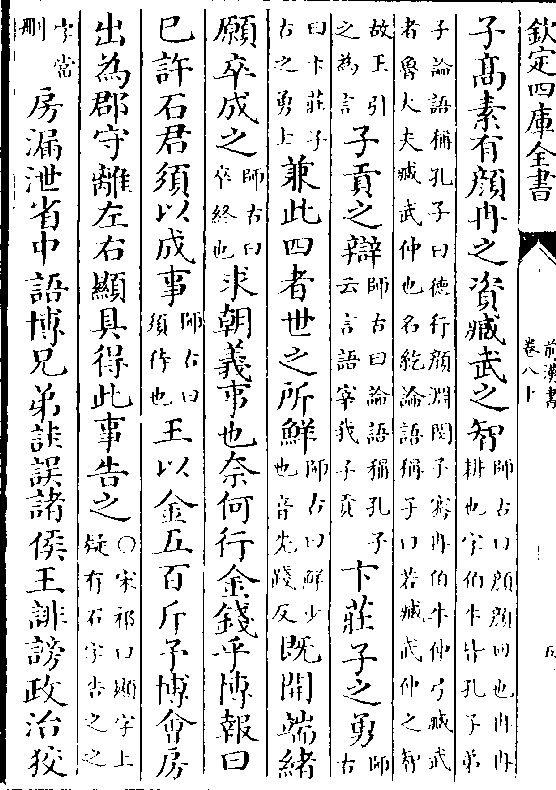 欽定四庫全書
前漢書
卷八十
五
子髙素有顔冉之資臧武之智師古曰顔顔回也冉冉
耕也字伯牛皆孔子弟
子論語稱孔子曰德行顔淵閔子騫冉伯牛仲弓臧武
者魯大夫臧武仲也名紇論語稱子曰若臧武仲之智
故王引
之為言
子貢之辯師古曰論語稱孔子
云言語宰我子貢
卞莊子之勇師
古
曰卞莊子
古之勇士
兼此四者世之所鮮師古曰鮮少
也音先踐反
既開端緒
願卒成之師古曰
卒終也
求朝義事也奈何行金錢乎博報曰
已許石君須以成事師古曰
須待也
王以金五百斤予博會房
出為郡守離左右顯具得此事告之○宋祁曰顯字上
疑有石字告之之
字當
刪
房漏泄省中語博兄弟詿誤諸侯王誹謗政治狡